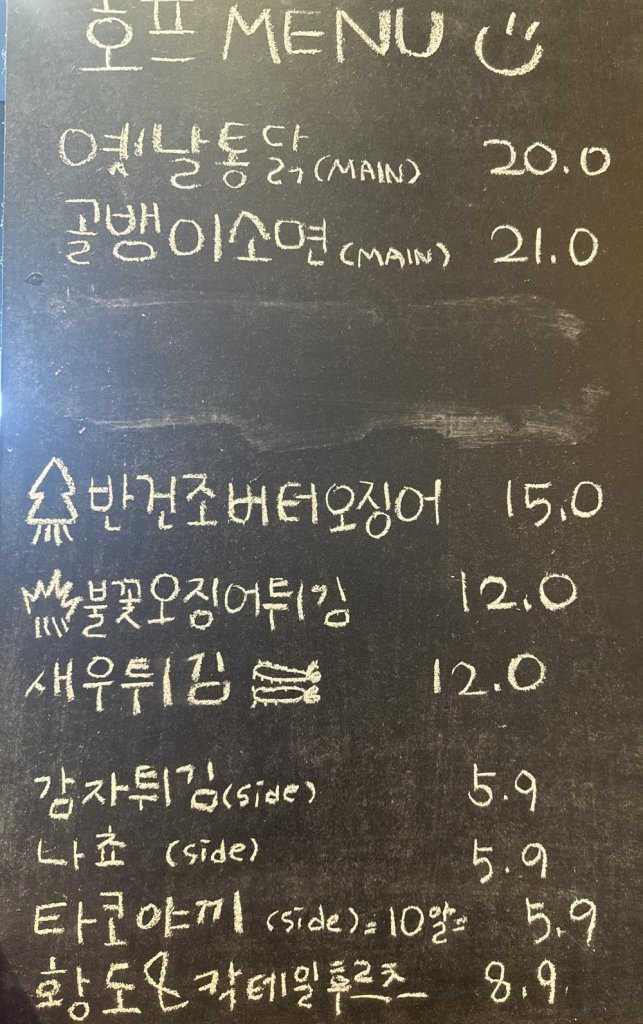 호프 MENU
옛날통닭(MAIN) 20.0
골뱅이소면(MAIN) 21.0
반건조버터오징어 15.0
불꽃오징어튀김 12.0
새우튀김 12.0
감자튀김(side) 5.9
나쵸 (side) 5.9
타코야끼 (side)=10알= 5.9
황도&칵테일후르츠 8.9